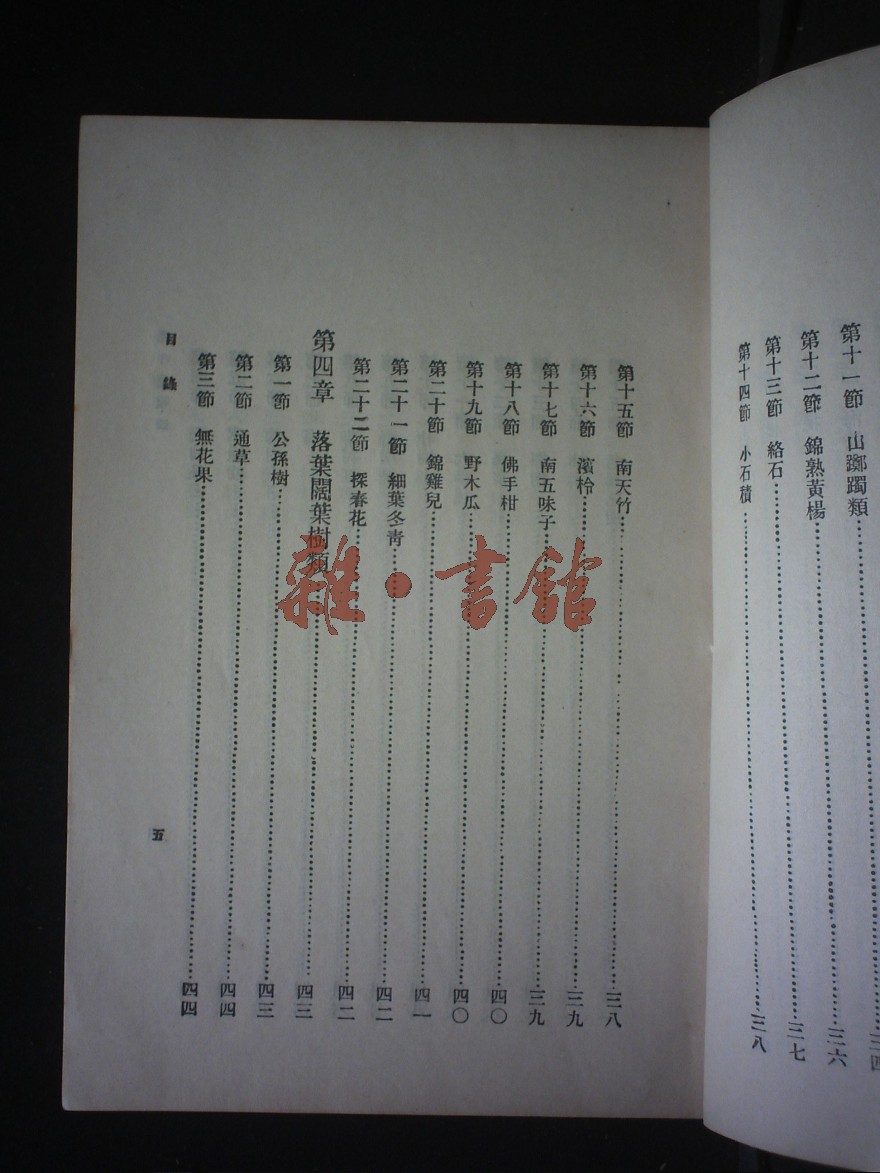 第十一節 山躑躅類 三四
第十二節 錦熟黃楊 三六
第十三節 絡石 三七
第十四節 小石積 三八
第十五節 南天竹 三八
第十六節 濱柃 三九
第十七節 南五味子 三九
第十八節 佛手柑 四〇
第十九節 野木瓜 四〇
第二十節 錦雞兒 四一
第二十一節 細葉冬靑 四二
第二十二節 探春花 四二
第四章 落葉闊葉樹類 四三
第一節 公孫樹 四三
第二節 通草 四四
第三節 無花果 四四
目錄
五
雜·書館